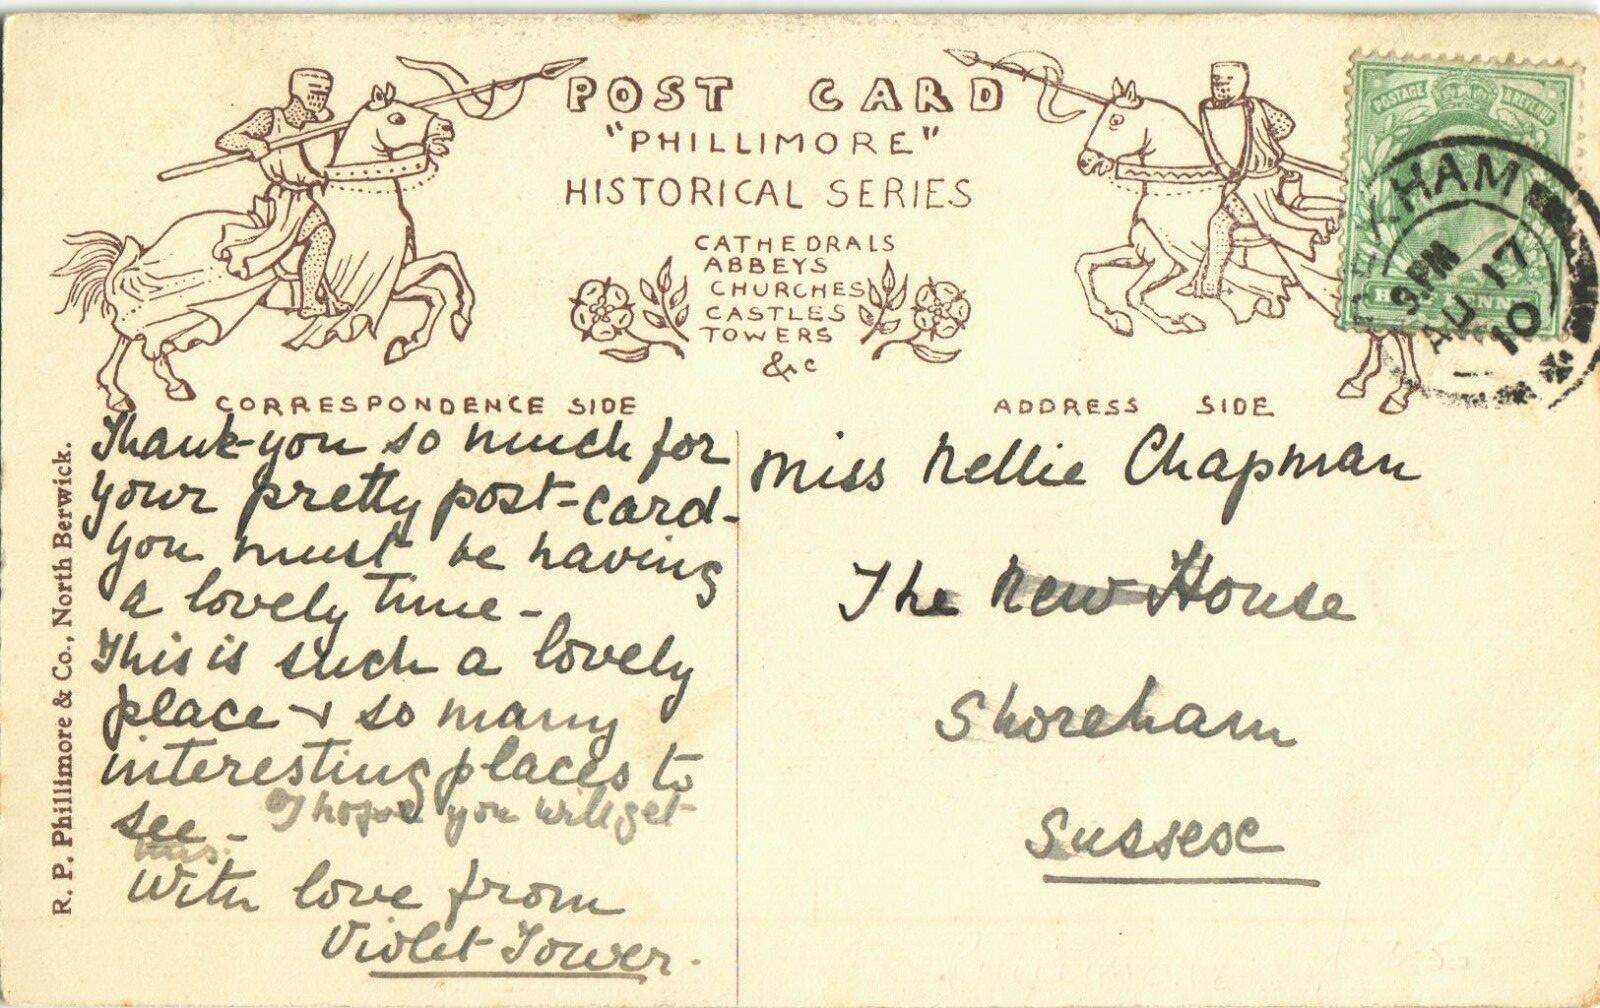 POST CARD
"PHILLIMORE"
HISTORICAL SERIES
CATHEDRALS
ABBEYS
CHURCHES
CASTLES
TOWERS
&c
POSTAGE & REVENUE
HALF PENNY
9.PM
AU 17
10
CORRESPONDENCE SIDE
Thank-you so much for
your pretty post-card-
you must be having
a lovely time -
This is such a lovely
place & so many
interesting places to
see - I hope you will get
this.
With love from
Violet Tower.
ADDRESS SIDE
Miss Nellie Chapman
The New House
Shoreham
Sussex
R. P. Phillimore & Co., North Berwick.